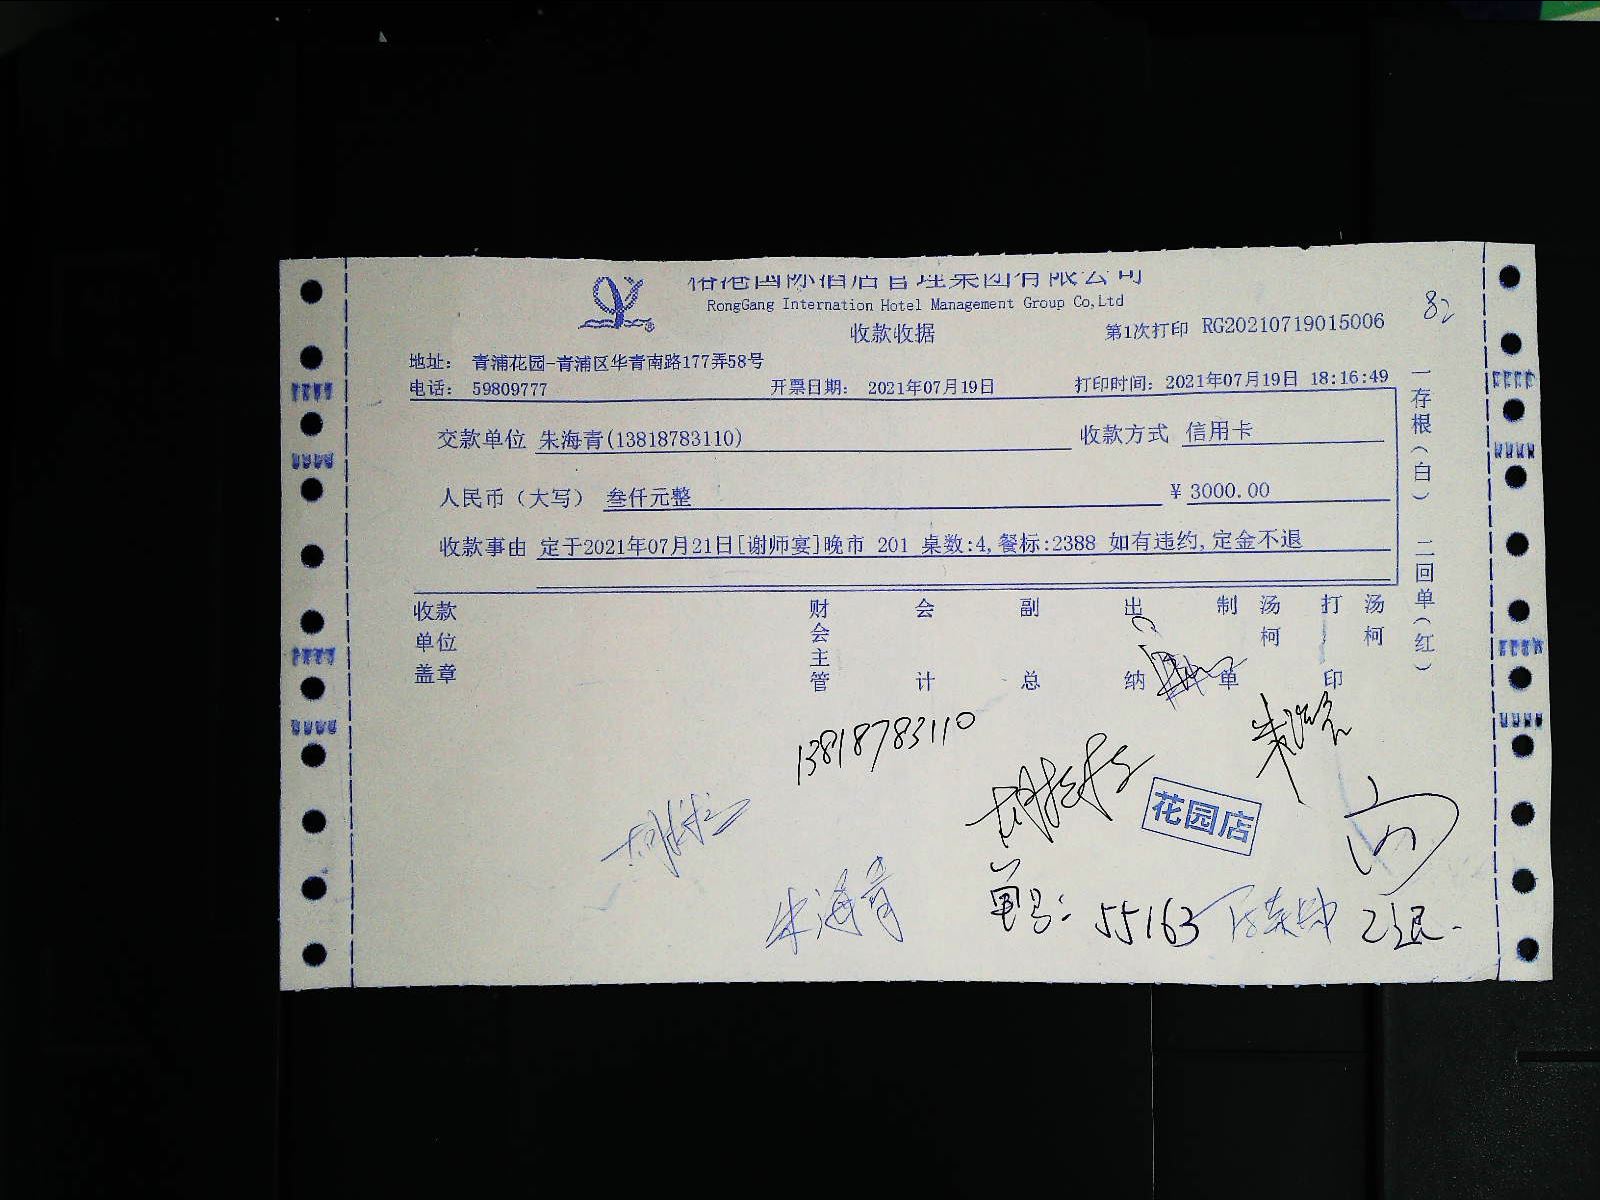 港国际酒店管理集团有限公司
RongGang Internation Hotel Management Group Co,Ltd
收款收据
第1次打印 RG20210719015006
82
地址： 青浦花园-青浦区华青南路177弄58号
电话： 59809777
开票日期： 2021年07月19日
打印时间：2021年07月19日 18:16:49
交款单位 朱海青(13818783110)
收款方式 信用卡
人民币（大写） 叁仟元整
¥ 3000.00
收款事由 定于2021年07月21日[谢师宴]晚市 201 桌数:4,餐标:2388 如有违约,定金不退
一存根（白） 二回单（红）
收款单位盖章
财会主管
会计
副总
出纳
制单
汤柯
打印
汤柯
13818783110
朱海青
花园店
朱海青
单号: 55163
已退.